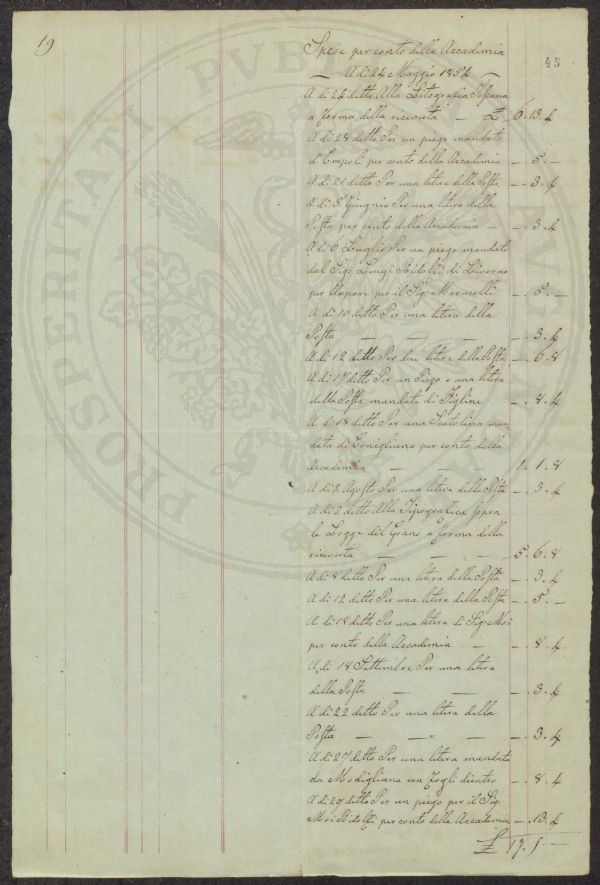 19
45
Spese per conto della Accademia
A di 24 Maggio 1854
A di 24 ditto Alla Litografia Toscana
a Forma della ricevuta — £ 6.13.4
A di 28 ditto Per un piego mandato
d'Empoli per conto della Accademia — . 5. —
A di 21 ditto Per una litera della Posta — . 3. 4
A di 5 Giugnio Per una litera della
Posta per conto della Accademia — — . 3. 4
A di 6 Luglio Per un piego mandato
dal Sigr Luigi Ridolfi di Livorno
per Vapore per il Sig. Marucelli — . 5. —
A di 10 ditto Per una litera della
Posta — — — — . 3. 4
A di 12 ditto Per due litere della Posta — . 6. 8
A di 17 ditto Per un Piego e una litera
della Posta mandato di Figline — . 8. 4
A di 18 ditto Per una Scatolina man
data di Conigliano per conto della
Accademia — — — 1. 1. 8
A di 2 Agosto Per una litera della Posta — . 3. 4
A di 2 ditto Alla Tipografica sopra
le Logge del Grano a Forma della
ricevuta — — — 5. 6. 8
A di 8 ditto Per una litera della Posta — . 3. 4
A di 12 ditto Per una litera della Posta — . 5. —
A di 18 ditto Per una litera Sig.
per conto della Accademia — — . 8. 4
A di 18 Settembre Per una litera
della Posta — — — — . 3. 4
A di 22 ditto Per una litera della
Posta — — — — . 3. 4
A di 27 ditto Per una litera mandata
da Modigliana con Fogli dientro — . 8. 4
A di 29 ditto Per un piego per il Sig.
Ridolfi per conto della Accademia — . 13. 4
£ 17. 5. —